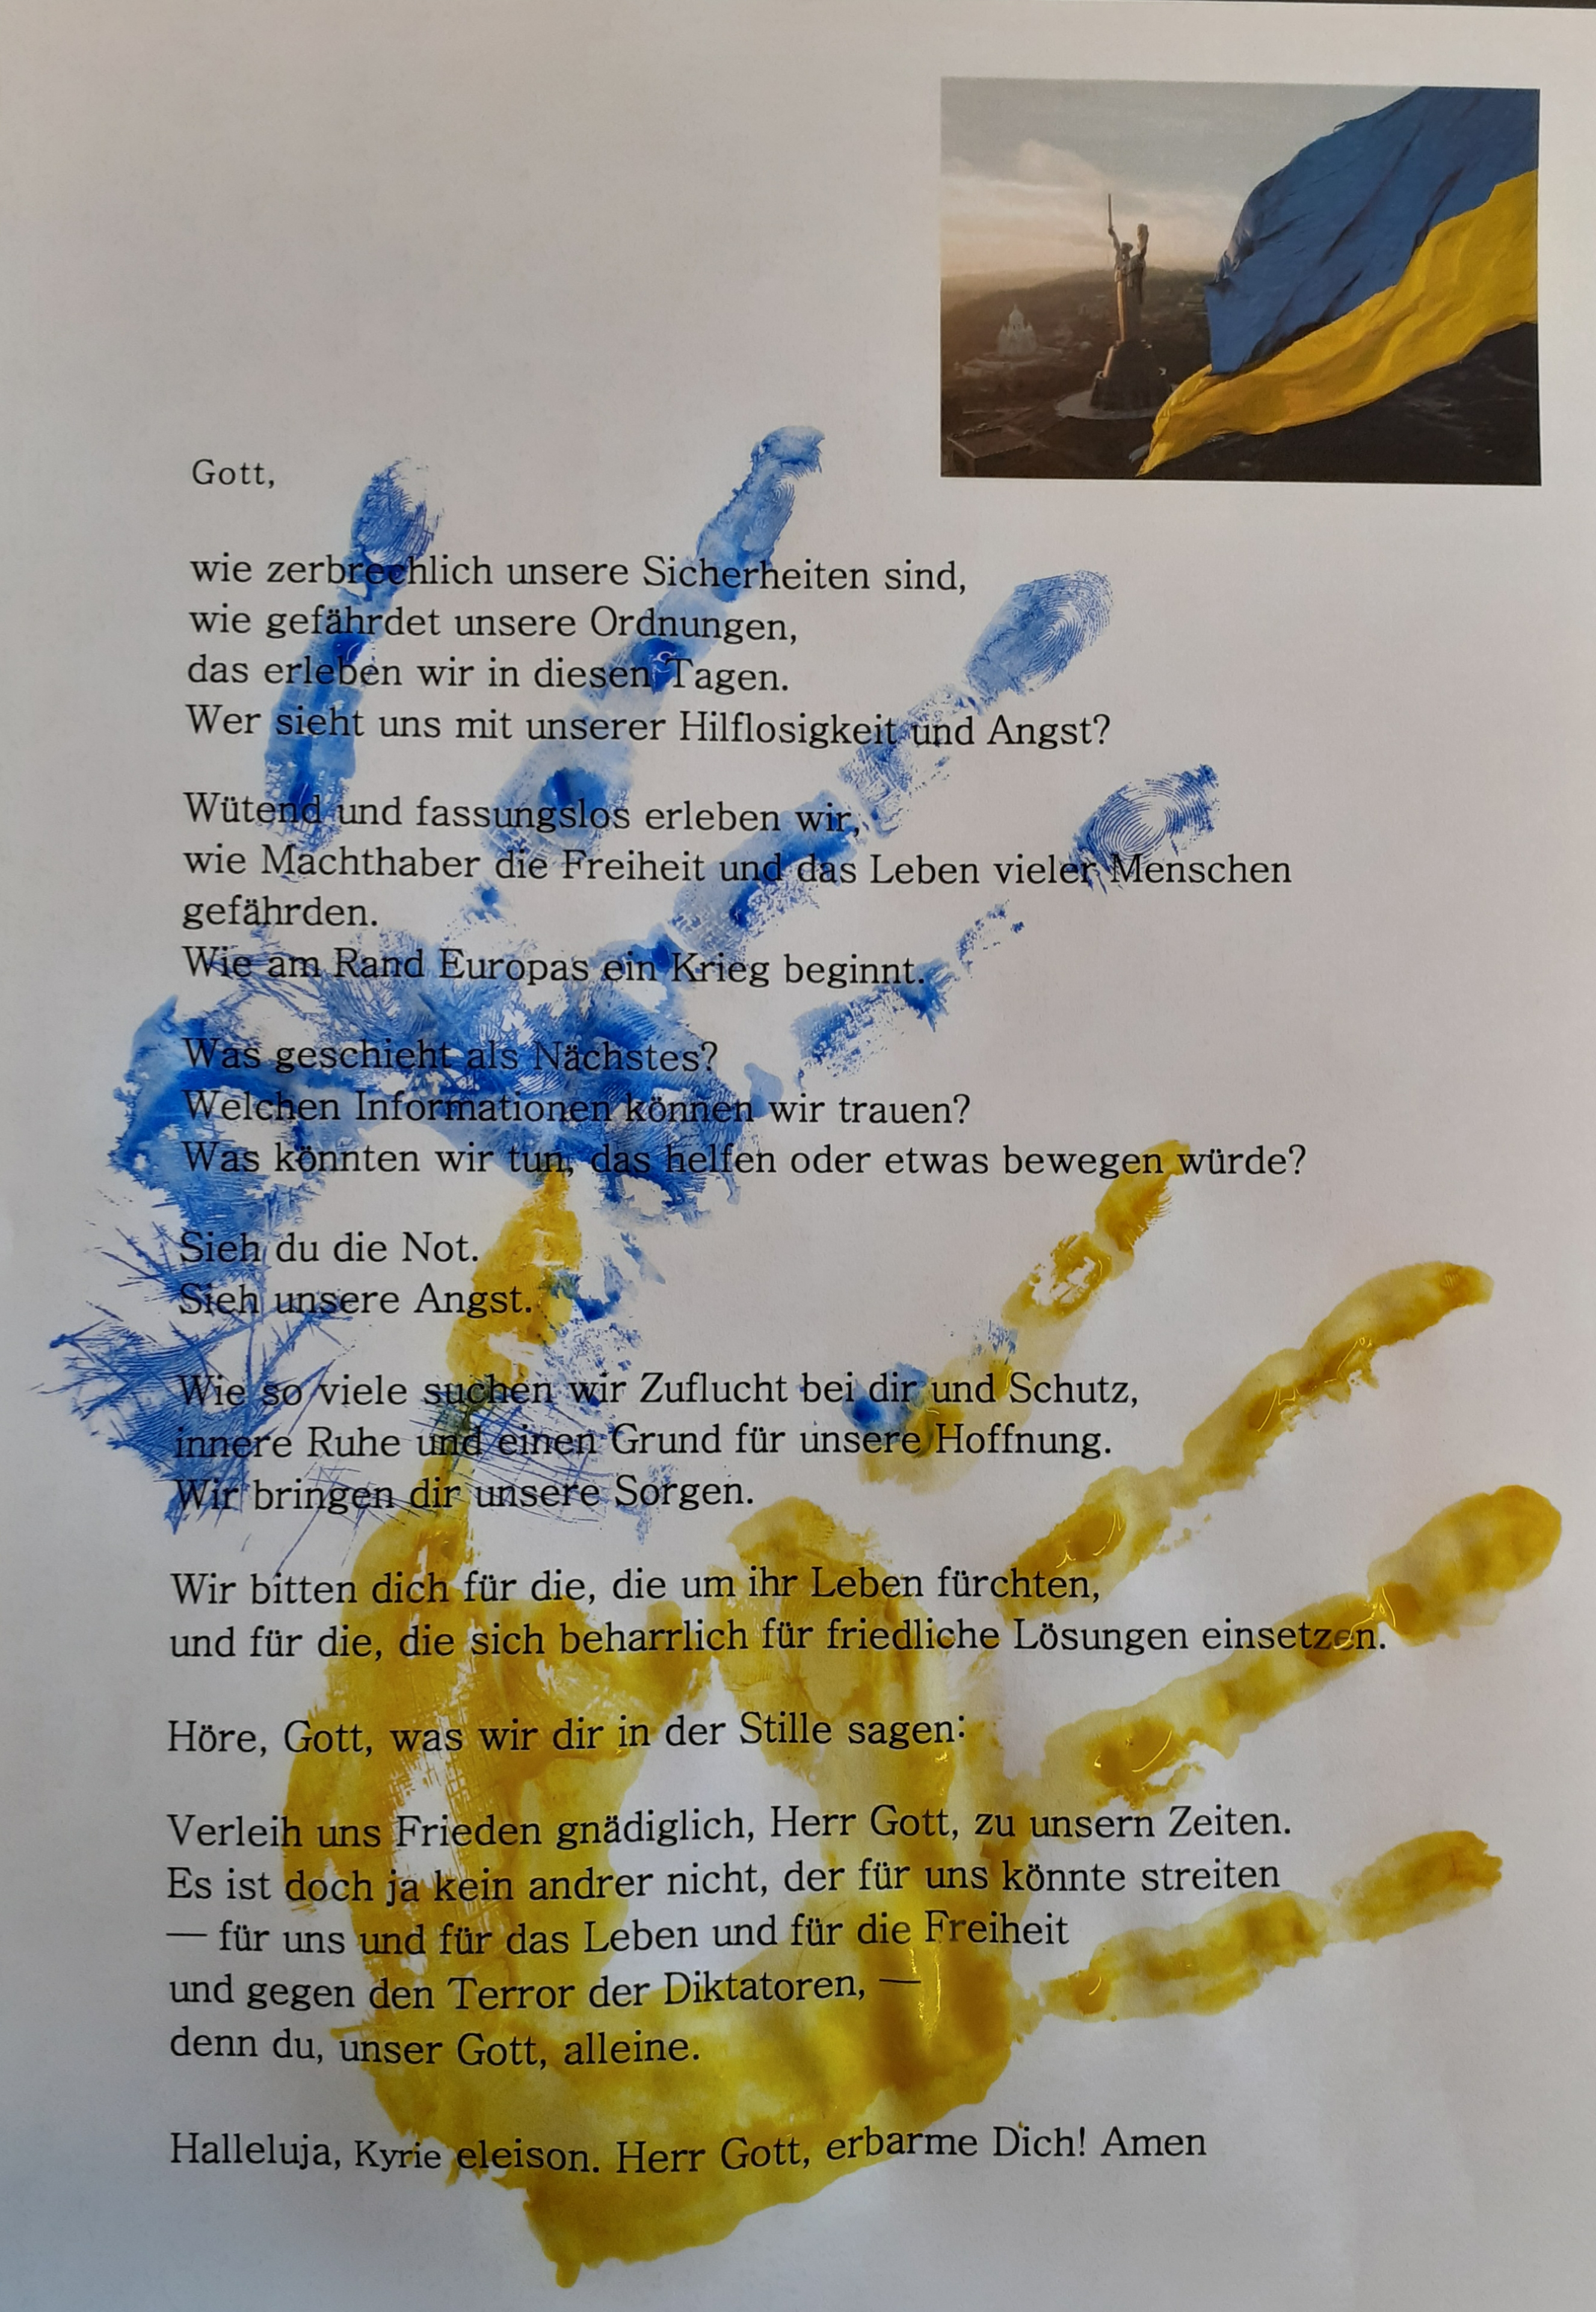 Gott,
wie zerbrechlich unsere Sicherheiten sind,
wie gefährdet unsere Ordnungen,
das erleben wir in diesen Tagen.
Wer sieht uns mit unserer Hilflosigkeit und Angst?
Wütend und fassungslos erleben wir,
wie Machthaber die Freiheit und das Leben vieler Menschen
gefährden.
Wie am Rand Europas ein Krieg beginnt.
Was geschieht als Nächstes?
Welchen Informationen können wir trauen?
Was könnten wir tun, das helfen oder etwas bewegen würde?
Sieh du die Not.
Sieh unsere Angst.
Wie so viele suchen wir Zuflucht bei dir und Schutz,
innere Ruhe und einen Grund für unsere Hoffnung.
Wir bringen dir unsere Sorgen.
Wir bitten dich für die, die um ihr Leben fürchten,
und für die, die sich beharrlich für friedliche Lösungen einsetzen.
Höre, Gott, was wir dir in der Stille sagen:
Verleih uns Frieden gnädiglich, Herr Gott, zu unsern Zeiten.
Es ist doch ja kein andrer nicht, der für uns könnte streiten
— für uns und für das Leben und für die Freiheit
und gegen den Terror der Diktatoren, —
denn du, unser Gott, alleine.
Halleluja, Kyrie eleison. Herr Gott, erbarme Dich! Amen